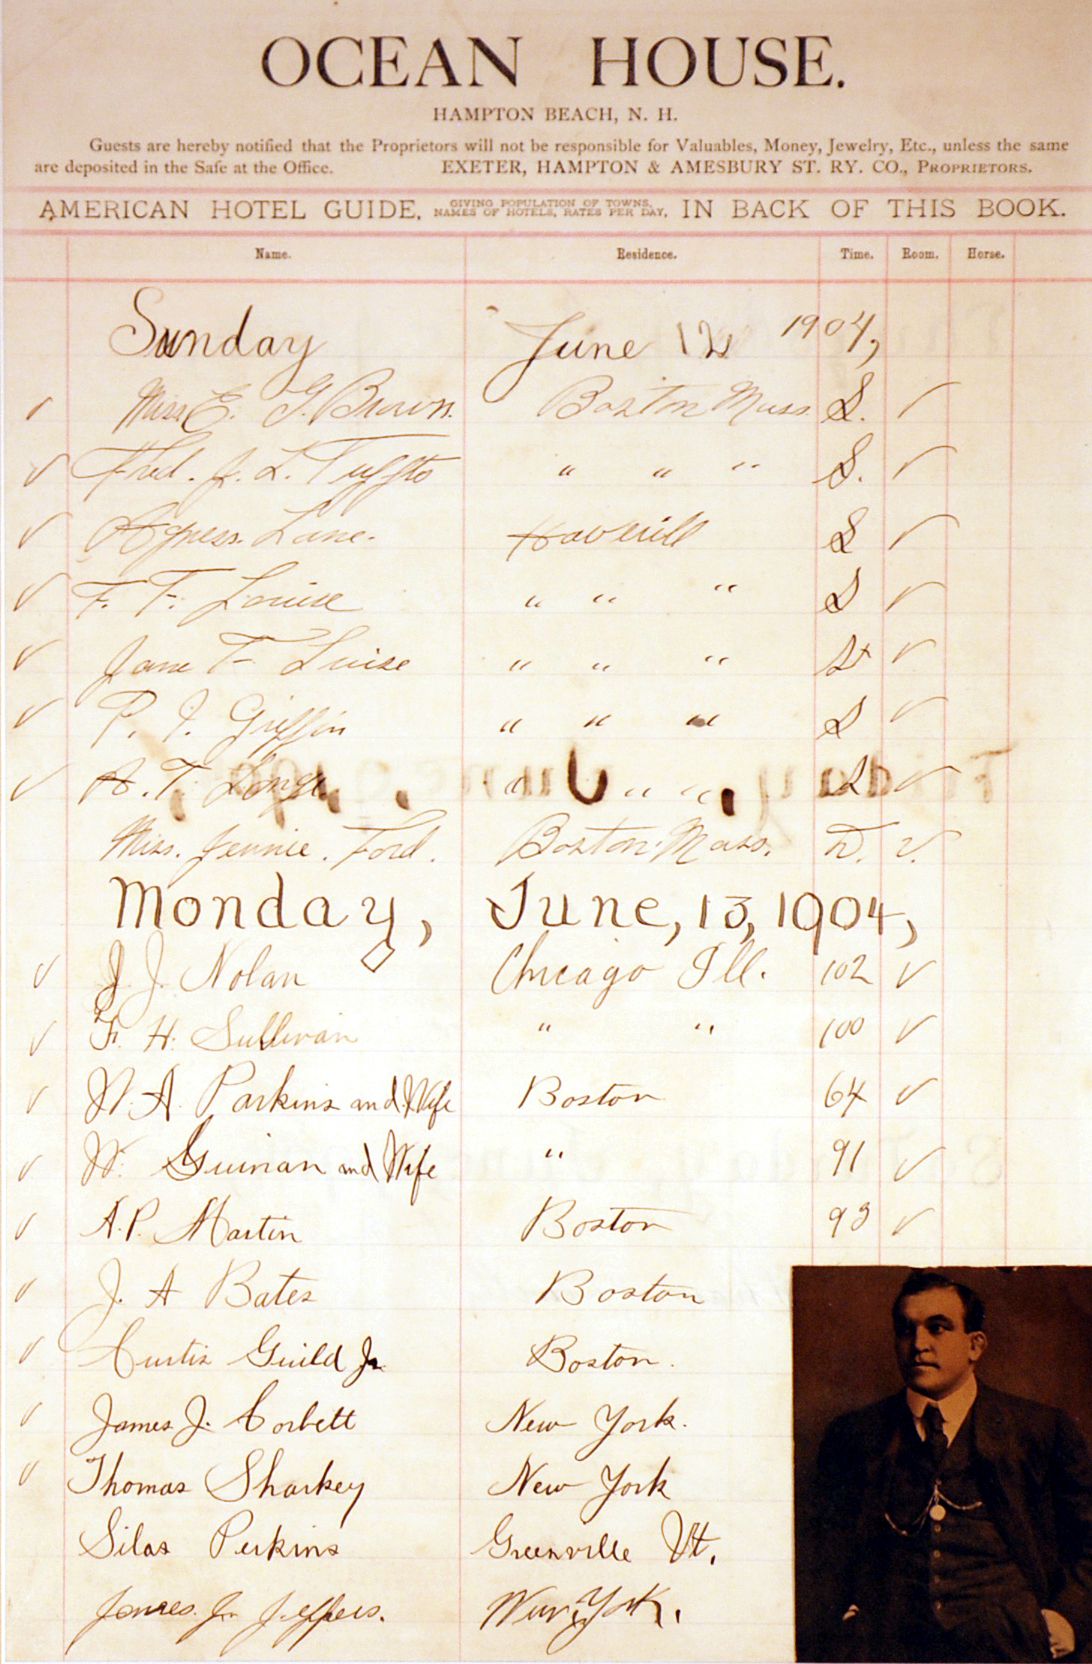 OCEAN HOUSE.
HAMPTON BEACH, N. H.
Guests are hereby notified that the Proprietors will not be responsible for Valuables, Money, Jewelry, Etc., unless the same
are deposited in the Safe at the Office. EXETER, HAMPTON & AMESBURY ST. RY. CO., PROPRIETORS.
AMERICAN HOTEL GUIDE, GIVING POPULATION OF TOWNS, NAMES OF HOTELS, RATES PER DAY, IN BACK OF THIS BOOK.
Name. Residence. Time. Room. Horse.
Sunday June 12 1904,
Miss E. G. Brown. Boston Mass. S.
J. L. " " " S.
Agness Lane. Haverill S
F. F. Louise " " " S
Jane F Luise " " "
P. J. Griffin " " " S
A. T. " " " S
Miss. Jennie. Ford. Boston Mass. D.
Monday, June, 13, 1904,
J. J. Nolan Chicago Ill. 102
F. H. Sullivan " " 100
W. A. Parkins and Wife Boston 64
W. Guinan and Wife " 91
A. P. Martin Boston 93
J. A Bates Boston
Curtis Guild Jr. Boston.
James J. Corbett New York.
Thomas Sharkey New York
Silas Perkins Greenville Vt.
James. J. Jeffers. New York.